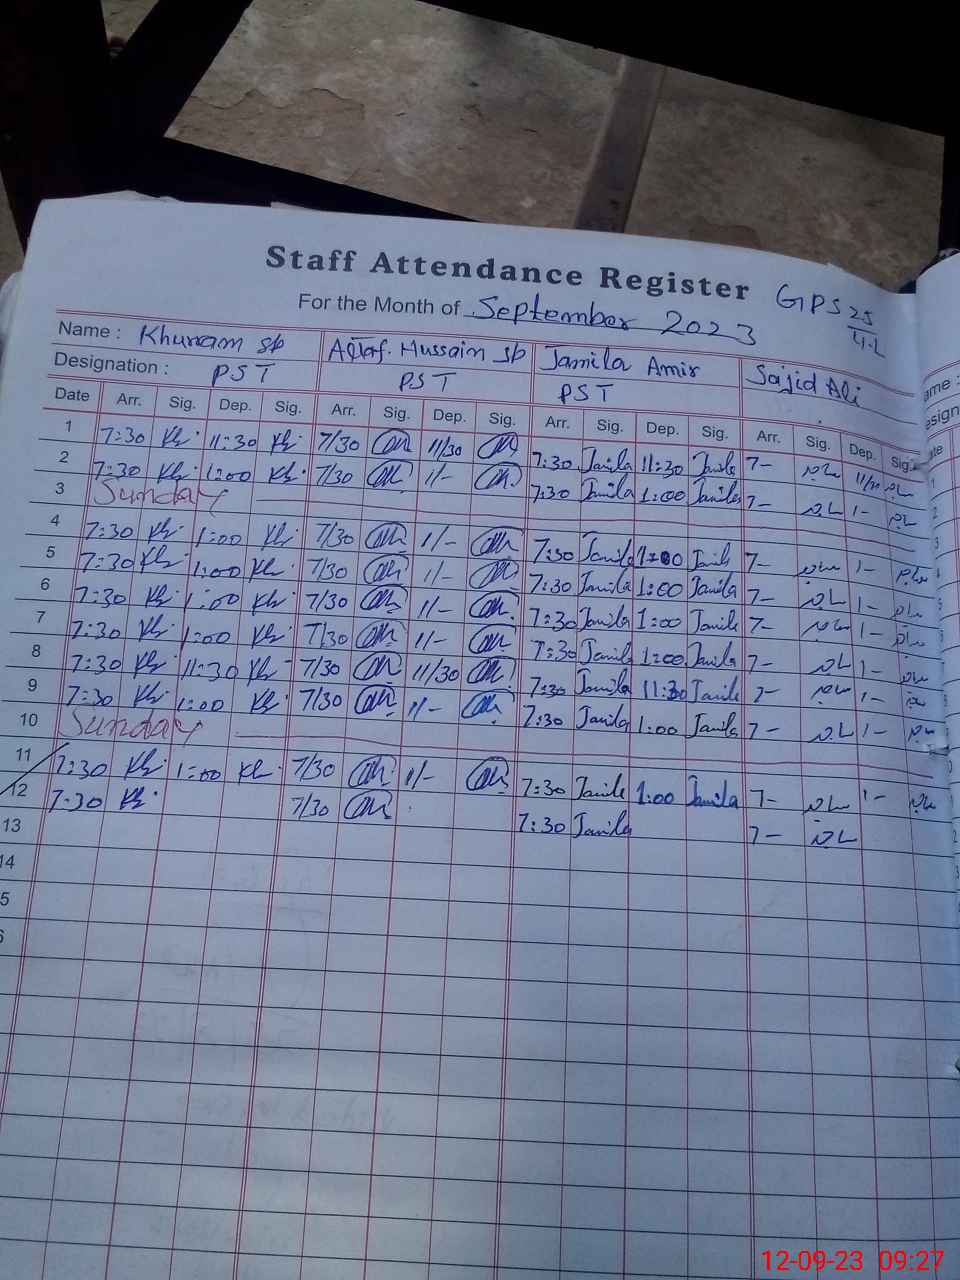 Staff Attendance Register GPS 25/4-L
For the Month of September 2023
Name : Khurram sb Altaf Hussain sb Jamila Amir Sajid Ali
Designation : PST PST PST
Date Arr. Sig. Dep. Sig. Arr. Sig. Dep. Sig. Arr. Sig. Dep. Sig. Arr. Sig. Dep. Sig.
1 7:30 Kh 11:30 Kh 7/30 11/30 7:30 Jamila 11:30 Jamila 7- ساجد 11/30 ساجد
2 7:30 Kh 1:00 Kh 7/30 1/- 7:30 Jamila 1:00 Jamila 7- ساجد 1- ساجد
3 Sunday
4 7:30 Kh 1:00 Kh 7/30 1/- 7:30 Jamila 1:00 Jamila 7- ساجد 1- ساجد
5 7:30 Kh 1:00 Kh 7/30 1/- 7:30 Jamila 1:00 Jamila 7- ساجد 1- ساجد
6 7:30 Kh 1:00 Kh 7/30 1/- 7:30 Jamila 1:00 Jamila 7- ساجد 1- ساجد
7 7:30 Kh 1:00 Kh 7/30 1/- 7:30 Jamila 1:00 Jamila 7- ساجد 1- ساجد
8 7:30 Kh 11:30 Kh 7/30 11/30 7:30 Jamila 11:30 Jamila 7- ساجد 1- ساجد
9 7:30 Kh 1:00 Kh 7/30 1/- 7:30 Jamila 1:00 Jamila 7- ساجد 1- ساجد
10 Sunday
11 7:30 Kh 1:00 Kh 7/30 1/- 7:30 Jamila 1:00 Jamila 7- ساجد 1- ساجد
12 7:30 Kh 7/30 7:30 Jamila 7- ساجد
13
14
5
6
12-09-23 09:27